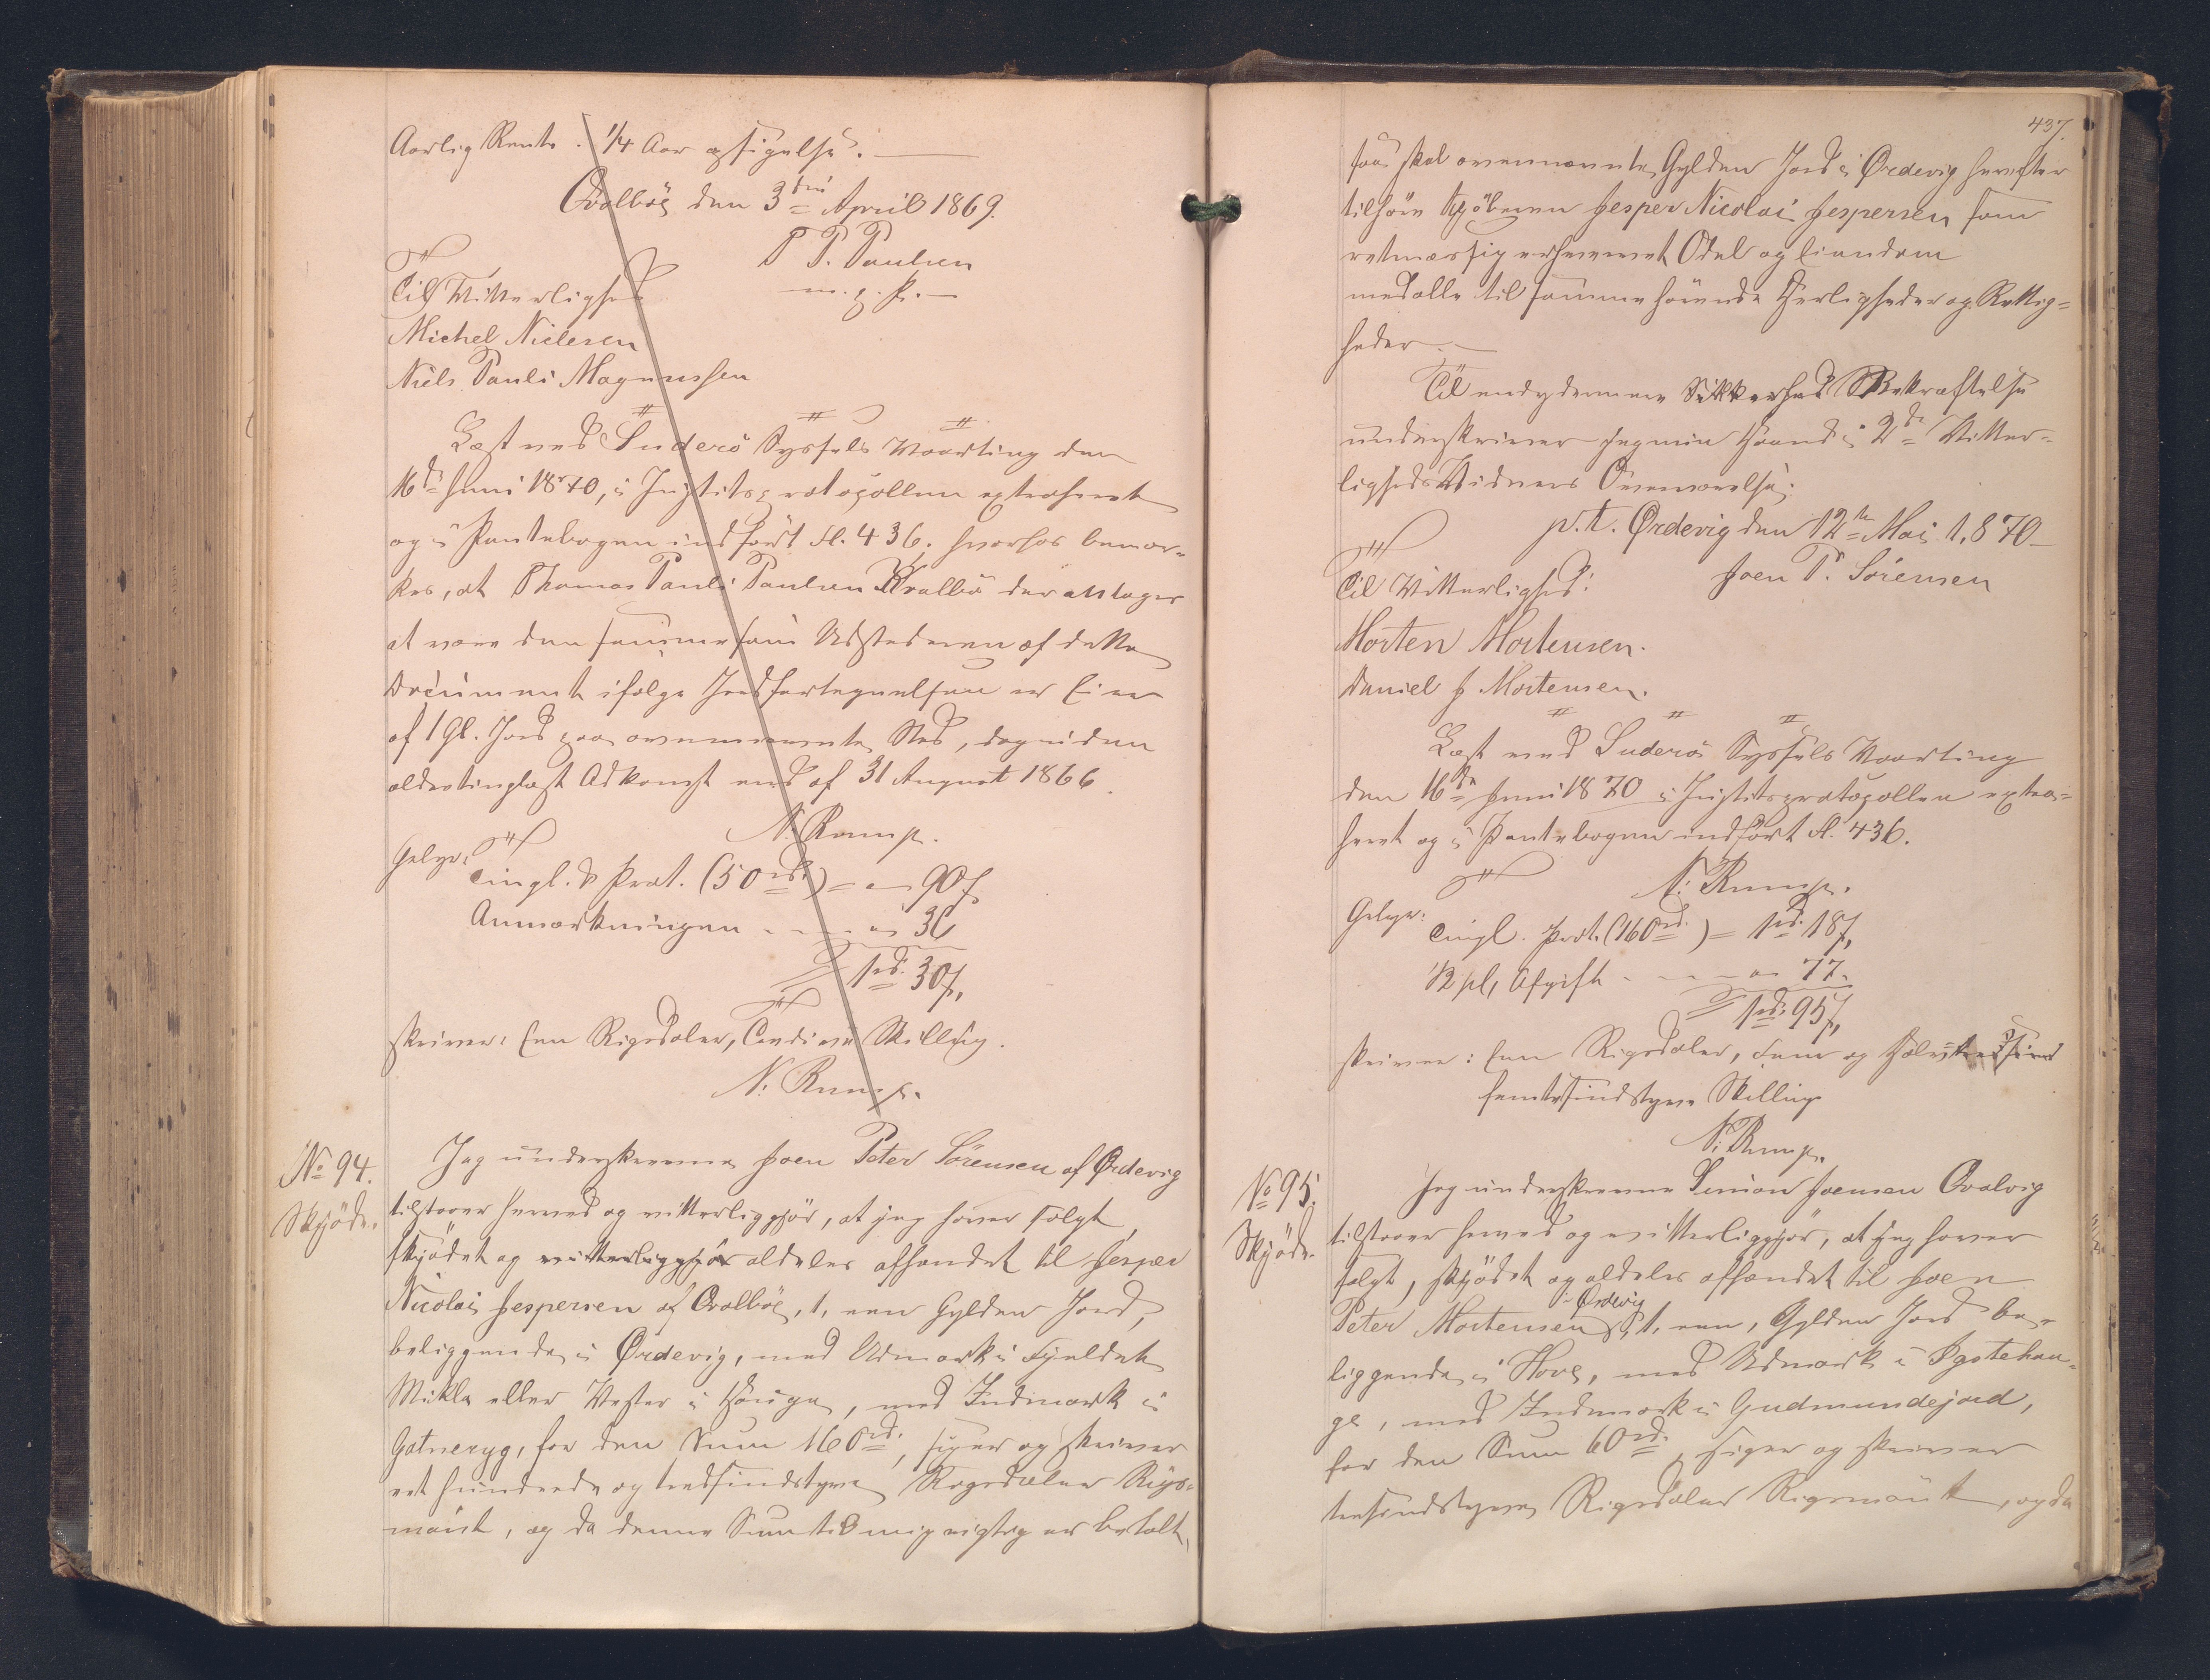 Aarlig Rente. 1/4 Aar opsigelse.
Qvalböe den 3die April 1869.
P. P. Paulsen
m. p. P.
Til Vitterlighed
Michel Nielesen
Niels Pauli Magnussen
Læst ved Suderö Syssels Vaarting den
16de Juni 1870, i Justitsprotocollen extraheret
og i Pantebogen indfört fl. 436, hvorhos bemær-
kes, at Thomas Pauli Paulsen Kvalbö der antages
at være den samme som Udstederen af dette
Document ifølge Jordfortegnelsen er Eier
af 1 Gl. Jord paa ovennævnte Sted, dog uden
aldertinglæst Adkomst end af 31 August 1866.
N. Rump.
Gebyr:
Tingl. & Prot. (50 rd.) = " 90 s
Anmærkningen - - " 36
1 rd. 30 s,
skriver: Een Rigsdaler, Tredive Skilling.
N. Rump.
No 94.
Skjöde.
Jeg underskrevne Joen Peter Sörensen af Ördevig
tilstaaer herved og vitterliggjör, at jeg haver solgt
skjödet og vitterliggjör aldeles afhændet til Jesper
Nicolai Jespersen af Qvalböe, 1, een Gylden Jord,
beliggende i Ördevig, med Udmark i Fjeldet
Mikla eller Vester i Houge, med Indmark i
Gatneryg, for den Sum 160 rd., siger og skriver
eet hundrede og tredsindstyve Rigsdaler Rigs-
mönt, og da denne Sum til mig rigtig er betalt,
437.
saa skal ovennævnte Gylden Jord i Ördevig herefter
tilhöre Kjöberen Jesper Nicolai Jespersen som
retmæssig erhvervet Odel og Eiendom
med alle til samme hörende Herligheder og Rettig-
heder.
Til endydermere Sikkerhed Bekræftelse
underskriver jeg min Haand i 2de Vitter-
ligheds Vidners Overværelse.
p. t. Ördevig den 12te Mai 1870
Joen P. Sörensen
Til Vitterlighed:
Morten Mortensen.
Daniel J Mortensen.
Læst ved Suderö Syssels Vaarting
den 16de Juni 1870 i Justitsprotocollen extra-
heret og i Pantebogen indfört fl. 436.
N. Rump.
Gebyr:
Tingl. Prot. (160 rd.) = 1 rd. 18 s,
1/2 pCt. Afgift - - - " 77.
1 rd. 95 s,
skriver: Een Rigsdaler, Fem og
femtesindstyve Skilling
N. Rump.
No 95.
Skjöde.
Jeg underskrevne Simon Joensen Qvalvig
tilstaaer herved og vitterliggjör, at jeg haver
solgt, skjödet og aldeles afhændet til Joen
Ördevig
Peter Mortensen, 1, een, Gylden Jord be-
liggende i Hove, med Udmark i
ge, med Indmark i Gudmundejord,
for den Sum 60 rd., siger og skriver
tresindstyve Rigsdaler Rigsmönt, og da